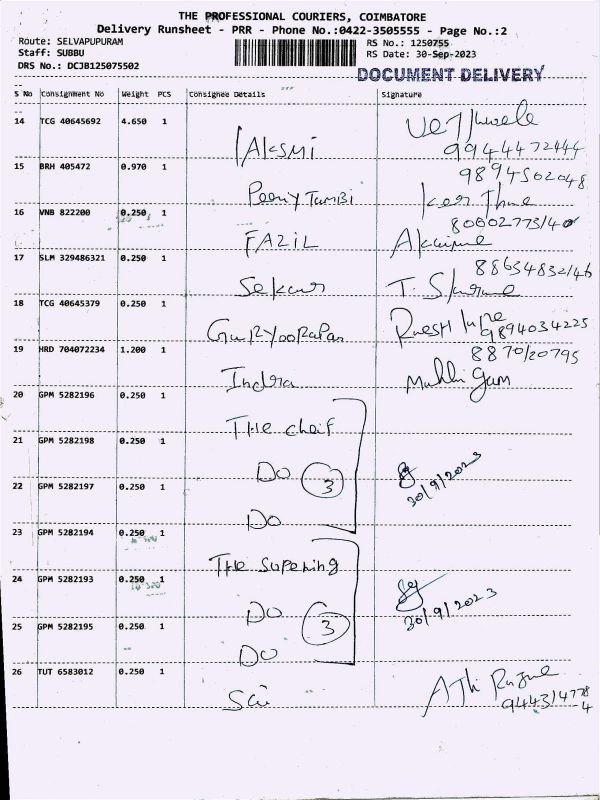 THE PROFESSIONAL COURIERS, COIMBATORE
Delivery Runsheet - PRR - Phone No.:0422-3505555 - Page No.:2
Route: SELVAPUPURAM RS No.: 1250755
Staff: SUBBU RS Date: 30-Sep-2023
DRS No.: DCJB125075502
DOCUMENT DELIVERY
S No Consignment No Weight PCS Consignee Details Signature
14 TCG 40645692 4.650 1
LAKSMI 9944472444
15 BRH 405472 0.970 1 9894502048
Peeriy TamBi
16 VNB 822200 0.250 1
FAZIL
17 SLM 329486321 0.250 1
Sekar
18 TCG 40645379 0.250 1
9894034225
19 HRD 704072234 1.200 1 8870120795
Indra
20 GPM 5282196 0.250 1
THE cheif
21 GPM 5282198 0.250 1
DO 3 30/9/2023
22 GPM 5282197 0.250 1
DO
23 GPM 5282194 0.250 1
THE SUPERING
24 GPM 5282193 0.250 1
DO 3 30/9/2023
25 GPM 5282195 0.250 1
DO
26 TUT 6583012 0.250 1
Sai